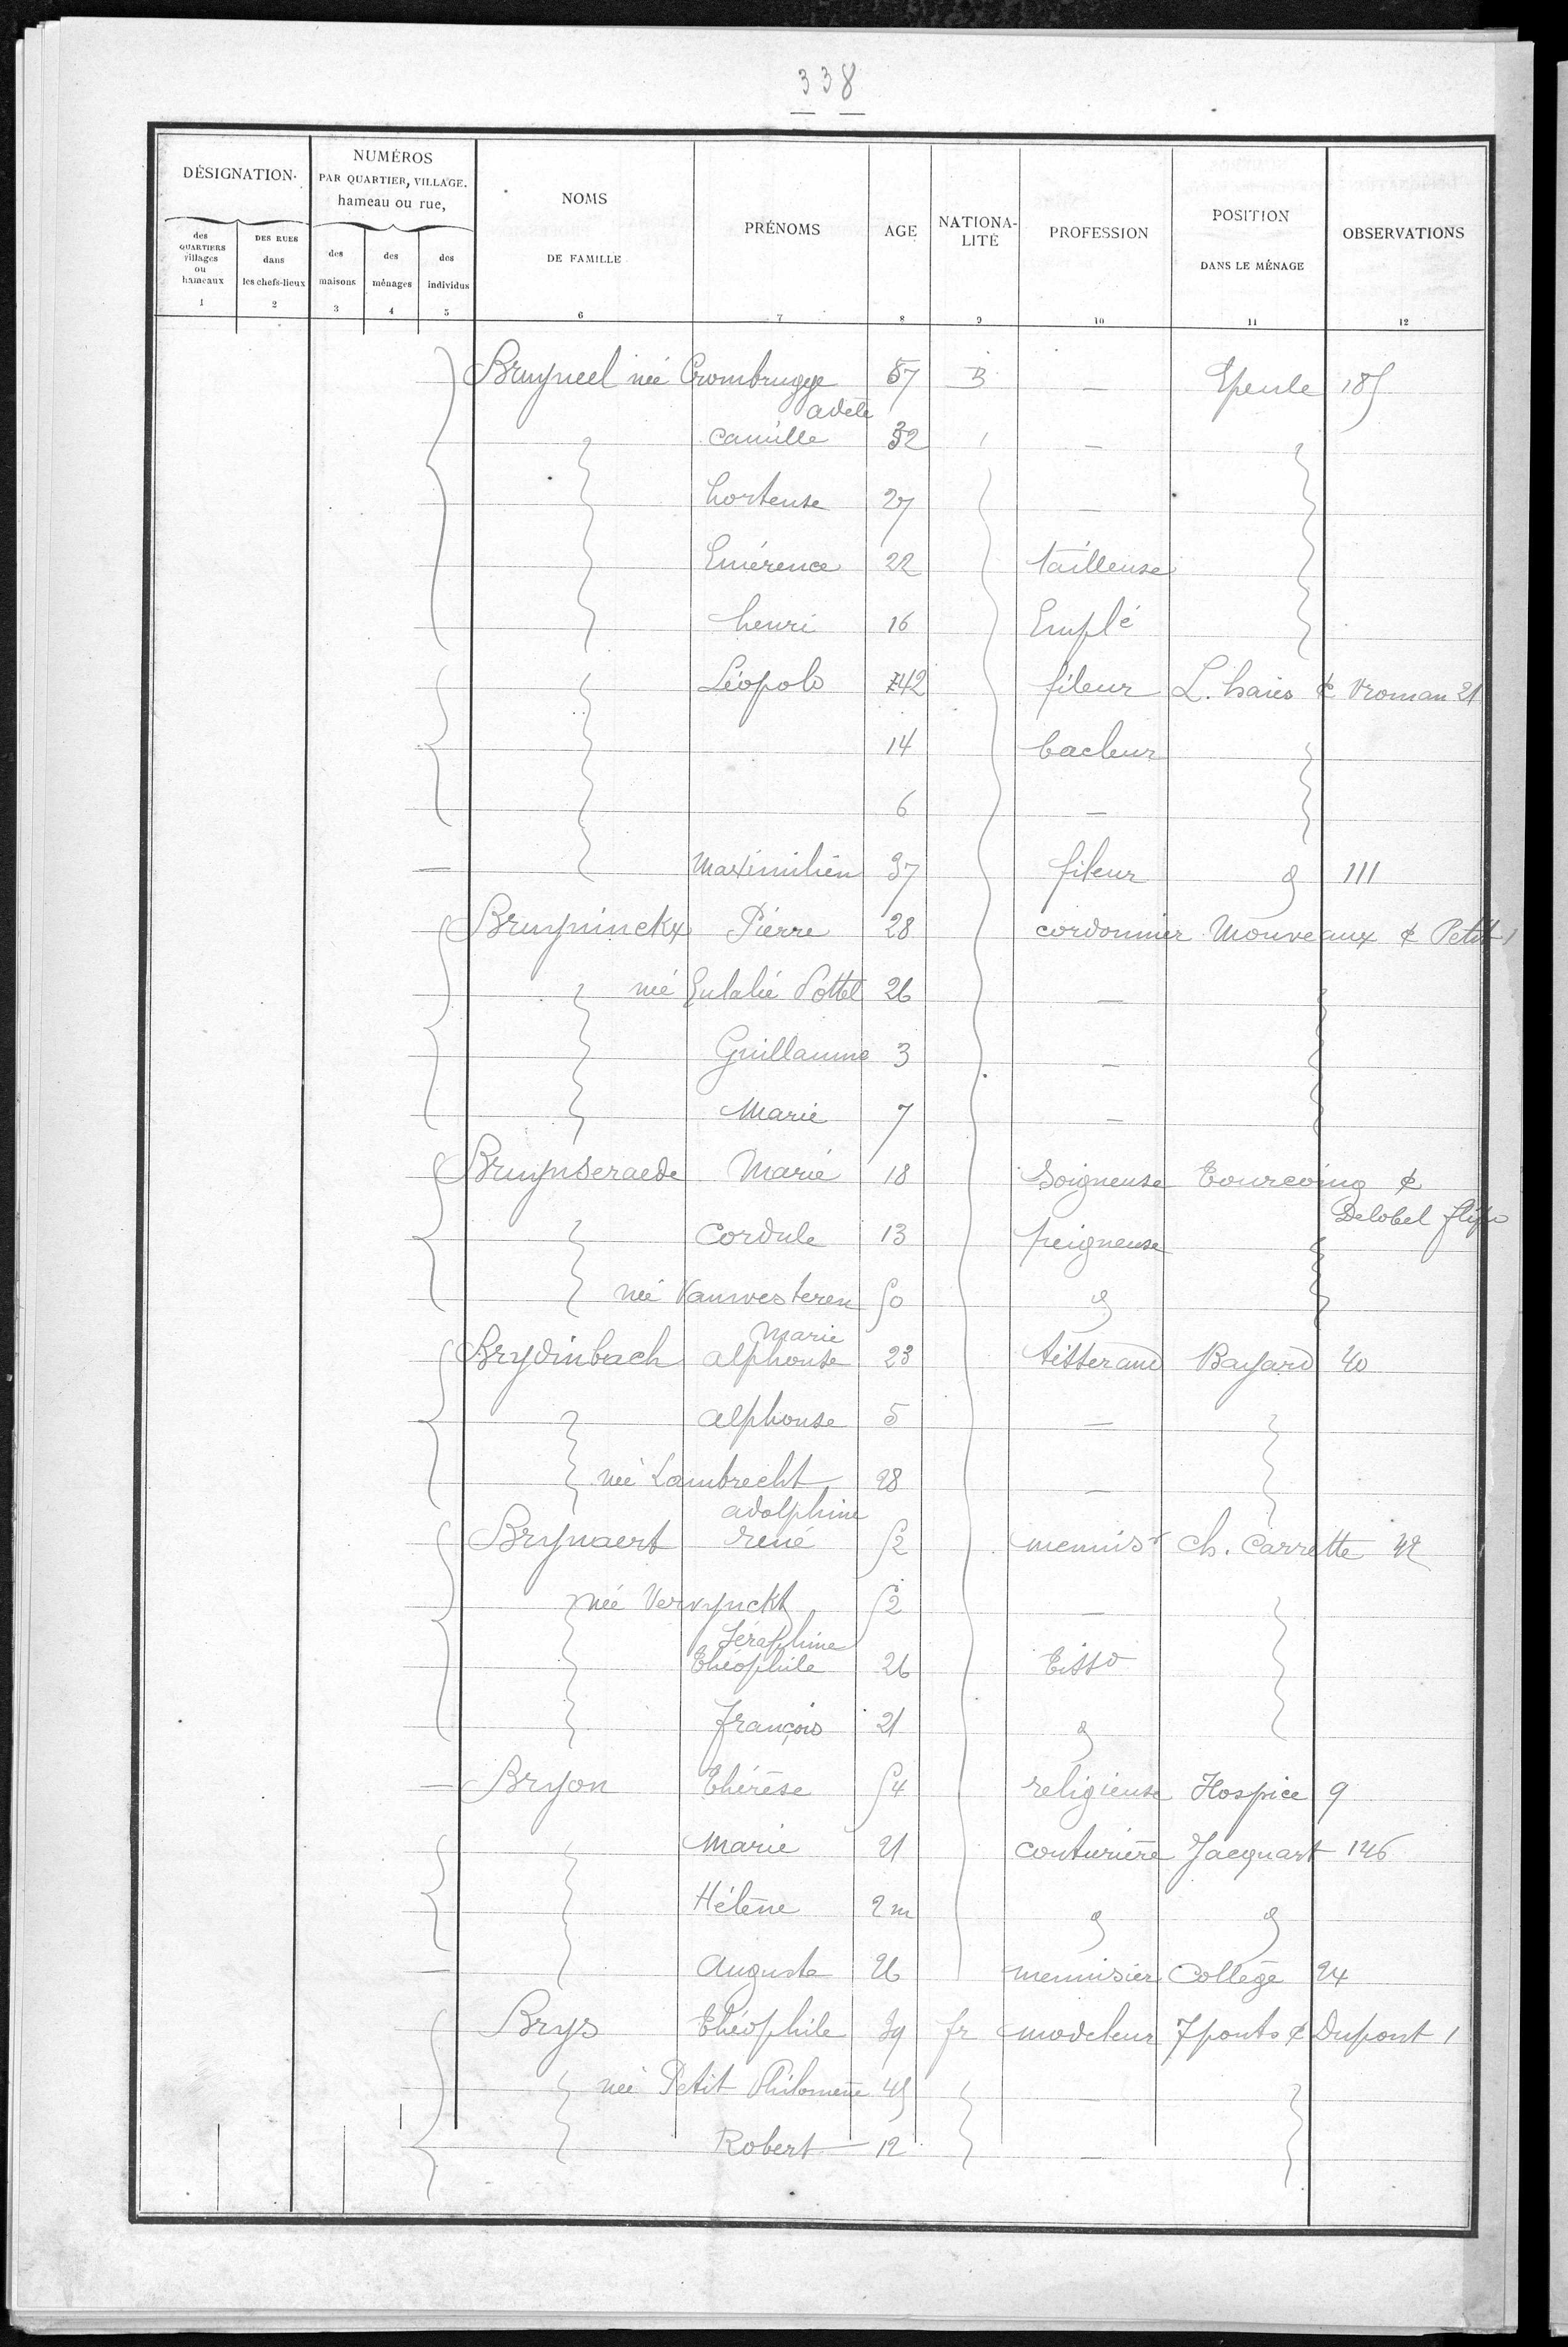 338
DÉSIGNATION
NUMÉROS
PAR QUARTIER, VILLAGE.
hameau ou rue,
NOMS
DE FAMILLE
PRÉNOMS
AGE
NATIONA-
LITÉ
PROFESSION
POSITION
DANS LE MÉNAGE
OBSERVATIONS
des
QUARTIERS
villages
ou
hameaux
DES RUES
dans
les chefs-lieux
des
maisons
des
ménages
des
individus
1 2 3 4 5 6 7 8 9 10 11 12
Bruyneel née Crombrugge 57 B — Epeule 185
adèle
camille 32 —
hortense 27 —
Emérence 22 tailleuse
henri 16 Emplé
Léopold 42 fileur L. haies Vroman 21
14 bacleur
6 —
Maximilien 37 fileur 111
Bruyninckx Pierre 28 cordonnier Mouveaux Petit 1
née Eulalie Pottel 26 —
Guillaume 3 —
Marie 7 —
Bruynseraede Marie 18 Soigneuse Tourcoing
Delobel flipo
Cordule 13 peigneuse
née Vanwesteren 50
Marie
Brydinbach alphonse 23 tisserand Bayard 40
alphonse 5 —
née Lambrecht 28 —
adolphine
Brynaert rené 52 menuisr ch. Carrette 42
née Vervynckt 52 —
Séraphine
Théophile 26 Tissd
françois 21
Bryon Thérèse 54 religieuse Hospice 9
Marie 21 couturière Jacquart 146
Hélène 2 m
Auguste 26 menuisier Collège 24
Brys Théophile 39 fr modeleur 7 ponts Dupont 1
née Petit Philomène 45 —
Robert 12 —